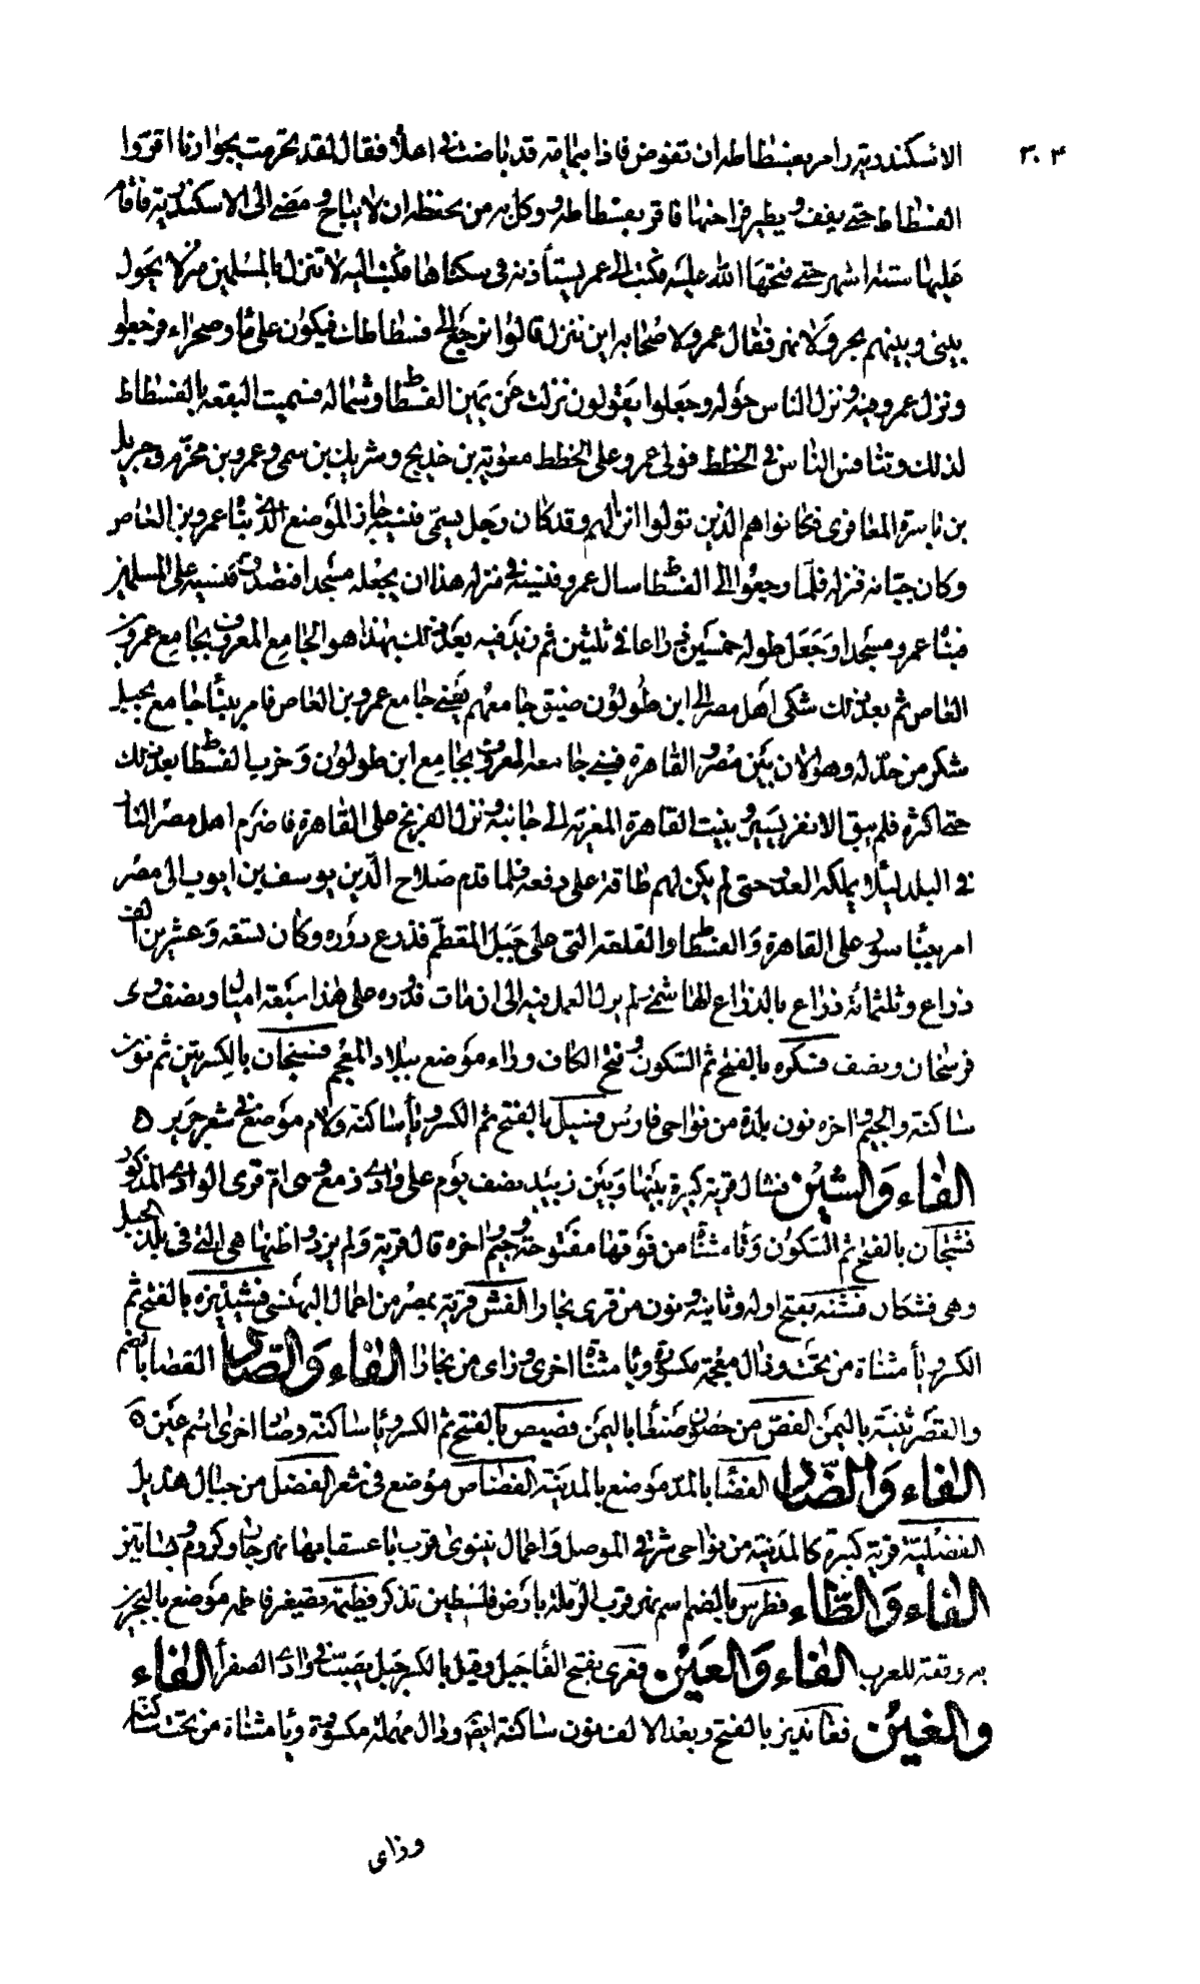 ٣٠٤
الاسكندرية وامر بفسطاطه ان تقوض فاذا بيمامة قد باضت فى اعلاه فقال لقد تحرمت بجوارنا اقروا
الفسطاط حتى يقف ويطير فراخها فاقر بفسطاطه ووكل به من يحفظه ان لا يباح ومضى الى الاسكندرية فاقام
عليها ستة اشهر حتى فتحها الله عليه فكتب الى عمر يستأذنه فى سكناها فكتب اليه لا تنزل بالمسلمين منزلا يحول
بينى وبينهم بحر ولا نهر فقال عمرو لاصحابه اين ننزل قالوا نرجع الى فسطاطك فيكون على ماء وصحراء فرجعوا
ونزل عمرو فيه ونزل الناس حوله وجعلوا يقولون نزلت عن يمين الفسطاط وشماله فسميت البقعة بالفسطاط
لذلك وتنافس الناس فى الخطط فولى عمرو على الخطط معوية بن خديج وشريك بن سمى وعمرو بن محزم وجبريل
بن ناسرة المعافرى فكانوا هم الذين تولوا انزالهم وقد كان رجل يسمى حاز الموضع الذى بناه عمرو بن العاص
وكان جنانه فنزله فلما رجعوا الى الفسطاط سال عمرو فى منزله هذا ان يجعله مسجدا فتصدق على المسلمين
فبناه عمرو مسجدا وجعل طوله خمسين ذراعا فى ثلثين ثم زيد فيه بعد ذلك فهذا هو الجامع المعروف بجامع عمرو بن
العاص ثم بعد ذلك شكى اهل مصر الى ابن طولون ضيق جامعهم يعنى جامع عمرو بن العاص فامر ببناء جامع بجبل
شكر من جذيلة وهو الان بين مصر والقاهرة فبنى جامعه المعروف بجامع ابن طولون وخرب الفسطاط بعد ذلك
حتى اكثره فلم يبق الا نفر يسير وبنيت القاهرة المعزية الى جانبه ونزل الفرنج على القاهرة فاضرم اهل مصر النار
فى البلد ليلا يملكه العدو حتى لم يكن لهم طاقة على دفعه فلما قدم صلاح الدين يوسف بن ايوب الى مصر
امر ببناء سور على القاهرة والفسطاط والقلعة التى على جبل المقطم فذرع دوره وكان تسعة وعشرين الف
ذراع وثلثمائة ذراع بالذراع الهاشمى لم يزل العمل فيه الى ان مات فدوره على هذا سبعة اميال ونصف وهى
فرسخان ونصف فسكره بالفتح ثم السكون وفتح الكاف وراء موضع ببلاد العجم فسنجان بالكسرتين ثم نون
ساكنة والجيم واخره نون بلدة من نواحى فارس فسيل بالفتح ثم الكسر وياء ساكنة ولام موضع فى شعر جرير ۵
الفاء والشين فشال قرية كبيرة بينها وبين زبيد نصف يوم على وادى زمع وهى ام قرى الوادى المذكور
فشتجان بالفتح ثم السكون وتاء مثناة من فوقها مفتوحة وجيم واخره قال قرية ولم يزد واظنها هى التى فى بلد الجبل
وهى فشكان فشنه بفتح اوله وثانيه ونون من قرى بخارا الفش قرية بمصر من اعمال البهنسى فشيذيزه بالفتح ثم
الكسر وياء مثناة من تحت وذال معجمة مكسورة وياء مثناة اخرى وزاى من بخارا الفاء والصاد الفصا بالضم
والقصر ثنية باليمن الفص من حصون صنعا باليمن فصيص بالفتح ثم الكسر وياء ساكنة وصاد اخرى اسم عين ۵
الفاء والضاد الفضا بالمد موضع بالمدينة الفضاض موضع فى شعر الفضل من جبال هذيل
الفضلية قرية كبيرة كالمدينة من نواحى شرقى الموصل واعمال نينوى قرب باعشيقا بها نهر جار وكروم وبساتين
الفاء والطاء فطرس بالضم اسم نهر قرب الرملة بارض فلسطين تذكر فطيمة تصغير فاطمة موضع بالبحرين
به وقعة للعرب الفاء والعين فعرى بفتح الفاء جبل وقيل بالكسر جبل يصب فى وادى الصفراء الفاء
والغين فغانديز بالفتح وبعد الالف نون ساكنة ايضا ودال مهملة مكسورة وياء مثناة من تحت ساكنة
وزاى